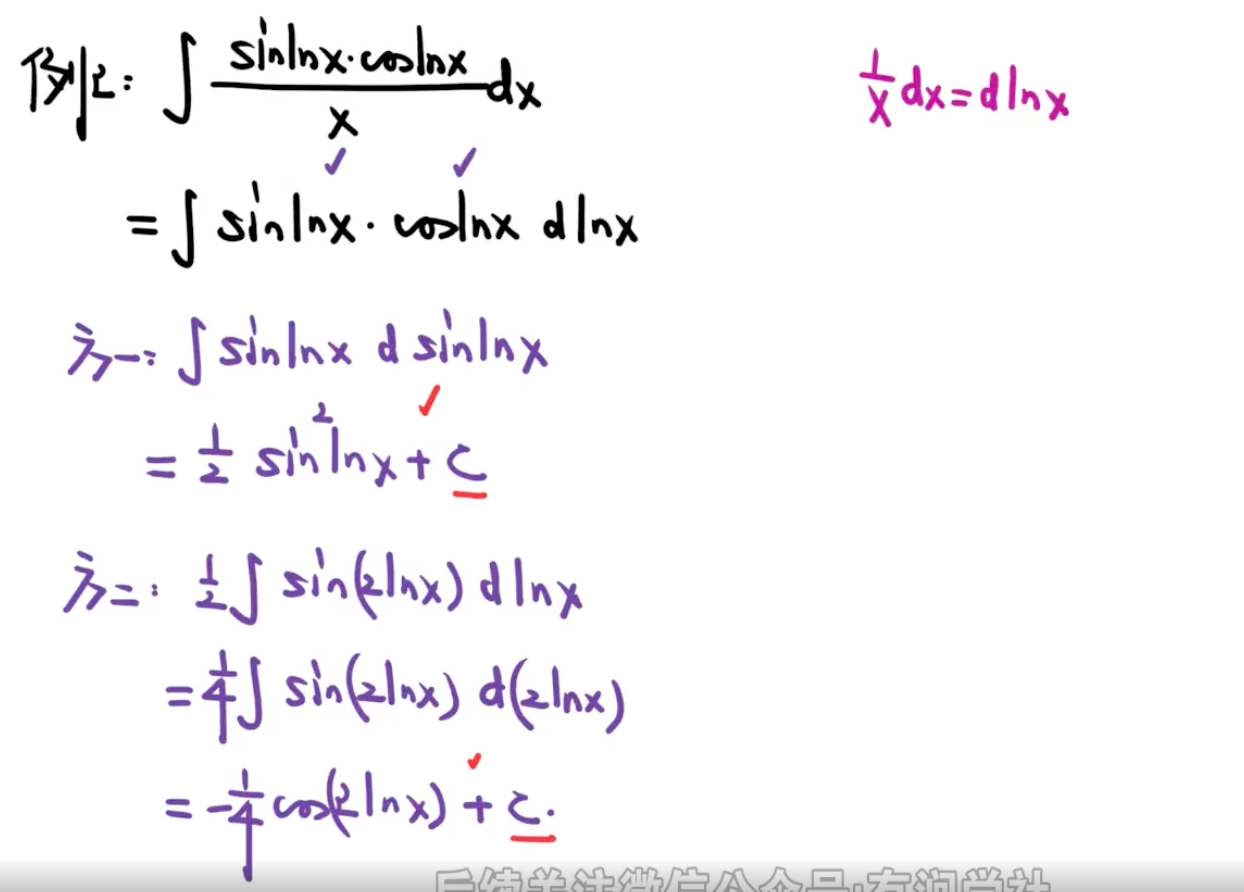 例2: ∫ (sinlnx·coslnx)/x dx
1/x dx = dlnx
= ∫ sinlnx · coslnx dlnx
方一: ∫ sinlnx d sinlnx
= 1/2 sin²lnx + C
方二: 1/2 ∫ sin(2lnx) dlnx
= 1/4 ∫ sin(2lnx) d(2lnx)
= -1/4 cos(2lnx) + C.
后续关注微信公众号:有润学社